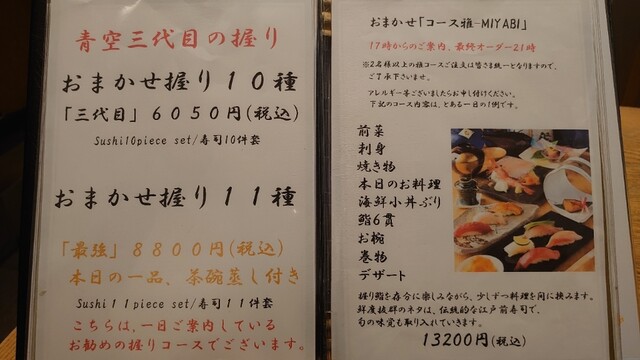 青空三代目の握り
おまかせ握り１０種
「三代目」６０５０円(税込)
Sushi10piece set/寿司10件套
おまかせ握り１１種
「最強」８８００円(税込)
本日の一品、茶碗蒸し付き
Sushi１１piece set/寿司１１件套
こちらは、一日ご案内している
お勧めの握りコースでございます。
おまかせ「コース雅-MIYABI」
17時からのご案内、最終オーダー21時
※2名様以上の雅コースご注文は皆さま統一となりますので、
ご了承下さいませ。
アレルギー等ございましたらお申し付けください。
下記のコース内容は、とある一日の1例です。
前菜
刺身
焼き物
本日のお料理
海鮮小丼ぶり
鮨6貫
お椀
巻物
デザート
握り鮨を存分に楽しみながら、少しずつ料理を間に挟みます。
鮮度抜群のネタは、伝統的な江戸前寿司で、
旬の味覚も取り入れていきます。
13200円(税込)